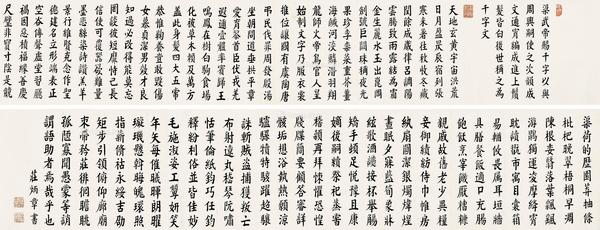 梁武帝賜千字以與
周興嗣使之次韻成
文通宵編成進上鬚
髮皆白後世稱之為
千字文
天地玄黃宇宙洪荒
日月盈昃辰宿列張
寒來暑往秋收冬藏
閏餘成歲律召調陽
雲騰致雨露結為霜
金生麗水玉出崑岡
劍號巨闕珠稱夜光
果珍李柰菜重芥薑
海鹹河淡鱗潛羽翔
龍師火帝鳥官人皇
始制文字乃服衣裳
推位讓國有虞陶唐
弔民伐罪周發殷湯
坐朝問道垂拱平章
愛育黎首臣伏戎羌
遐邇壹體率賓歸王
鳴鳳在樹白駒食場
化被草木賴及萬方
蓋此身髮四大五常
恭惟鞠養豈敢毀傷
女慕貞潔男效才良
知過必改得能莫忘
罔談彼短靡恃己長
信使可覆器欲難量
墨悲絲染詩讚羔羊
景行維賢克念作聖
德建名立形端表正
空谷傳聲虛堂習聽
禍因惡積福緣善慶
尺璧非寶寸陰是競
渠荷的歷園莽抽條
枇杷晚翠梧桐早凋
陳根委翳落葉飄颻
游鵾獨運凌摩絳霄
耽讀翫市寓目囊箱
易輶攸畏屬耳垣牆
具膳餐飯適口充腸
飽飫烹宰飢厭糟糠
親戚故舊老少異糧
妾御績紡侍巾帷房
紈扇圓潔銀燭煒煌
晝眠夕寐藍筍象床
絃歌酒讌接杯舉觴
矯手頓足悅豫且康
嫡後嗣續祭祀蒸嘗
稽顙再拜悚懼恐惶
牋牒簡要顧答審詳
骸垢想浴執熱願涼
驢騾犢特駭躍超驤
誅斬賊盜捕獲叛亡
布射遼丸嵇琴阮嘯
恬筆倫紙鈞巧任釣
釋紛利俗並皆佳妙
毛施淑姿工顰妍笑
年矢每催曦暉朗曜
璇璣懸斡晦魄環照
指薪修祜永綏吉劭
矩步引領俯仰廊廟
束帶矜莊徘徊瞻眺
孤陋寡聞愚蒙等誚
謂語助者焉哉乎也
莊炳章書